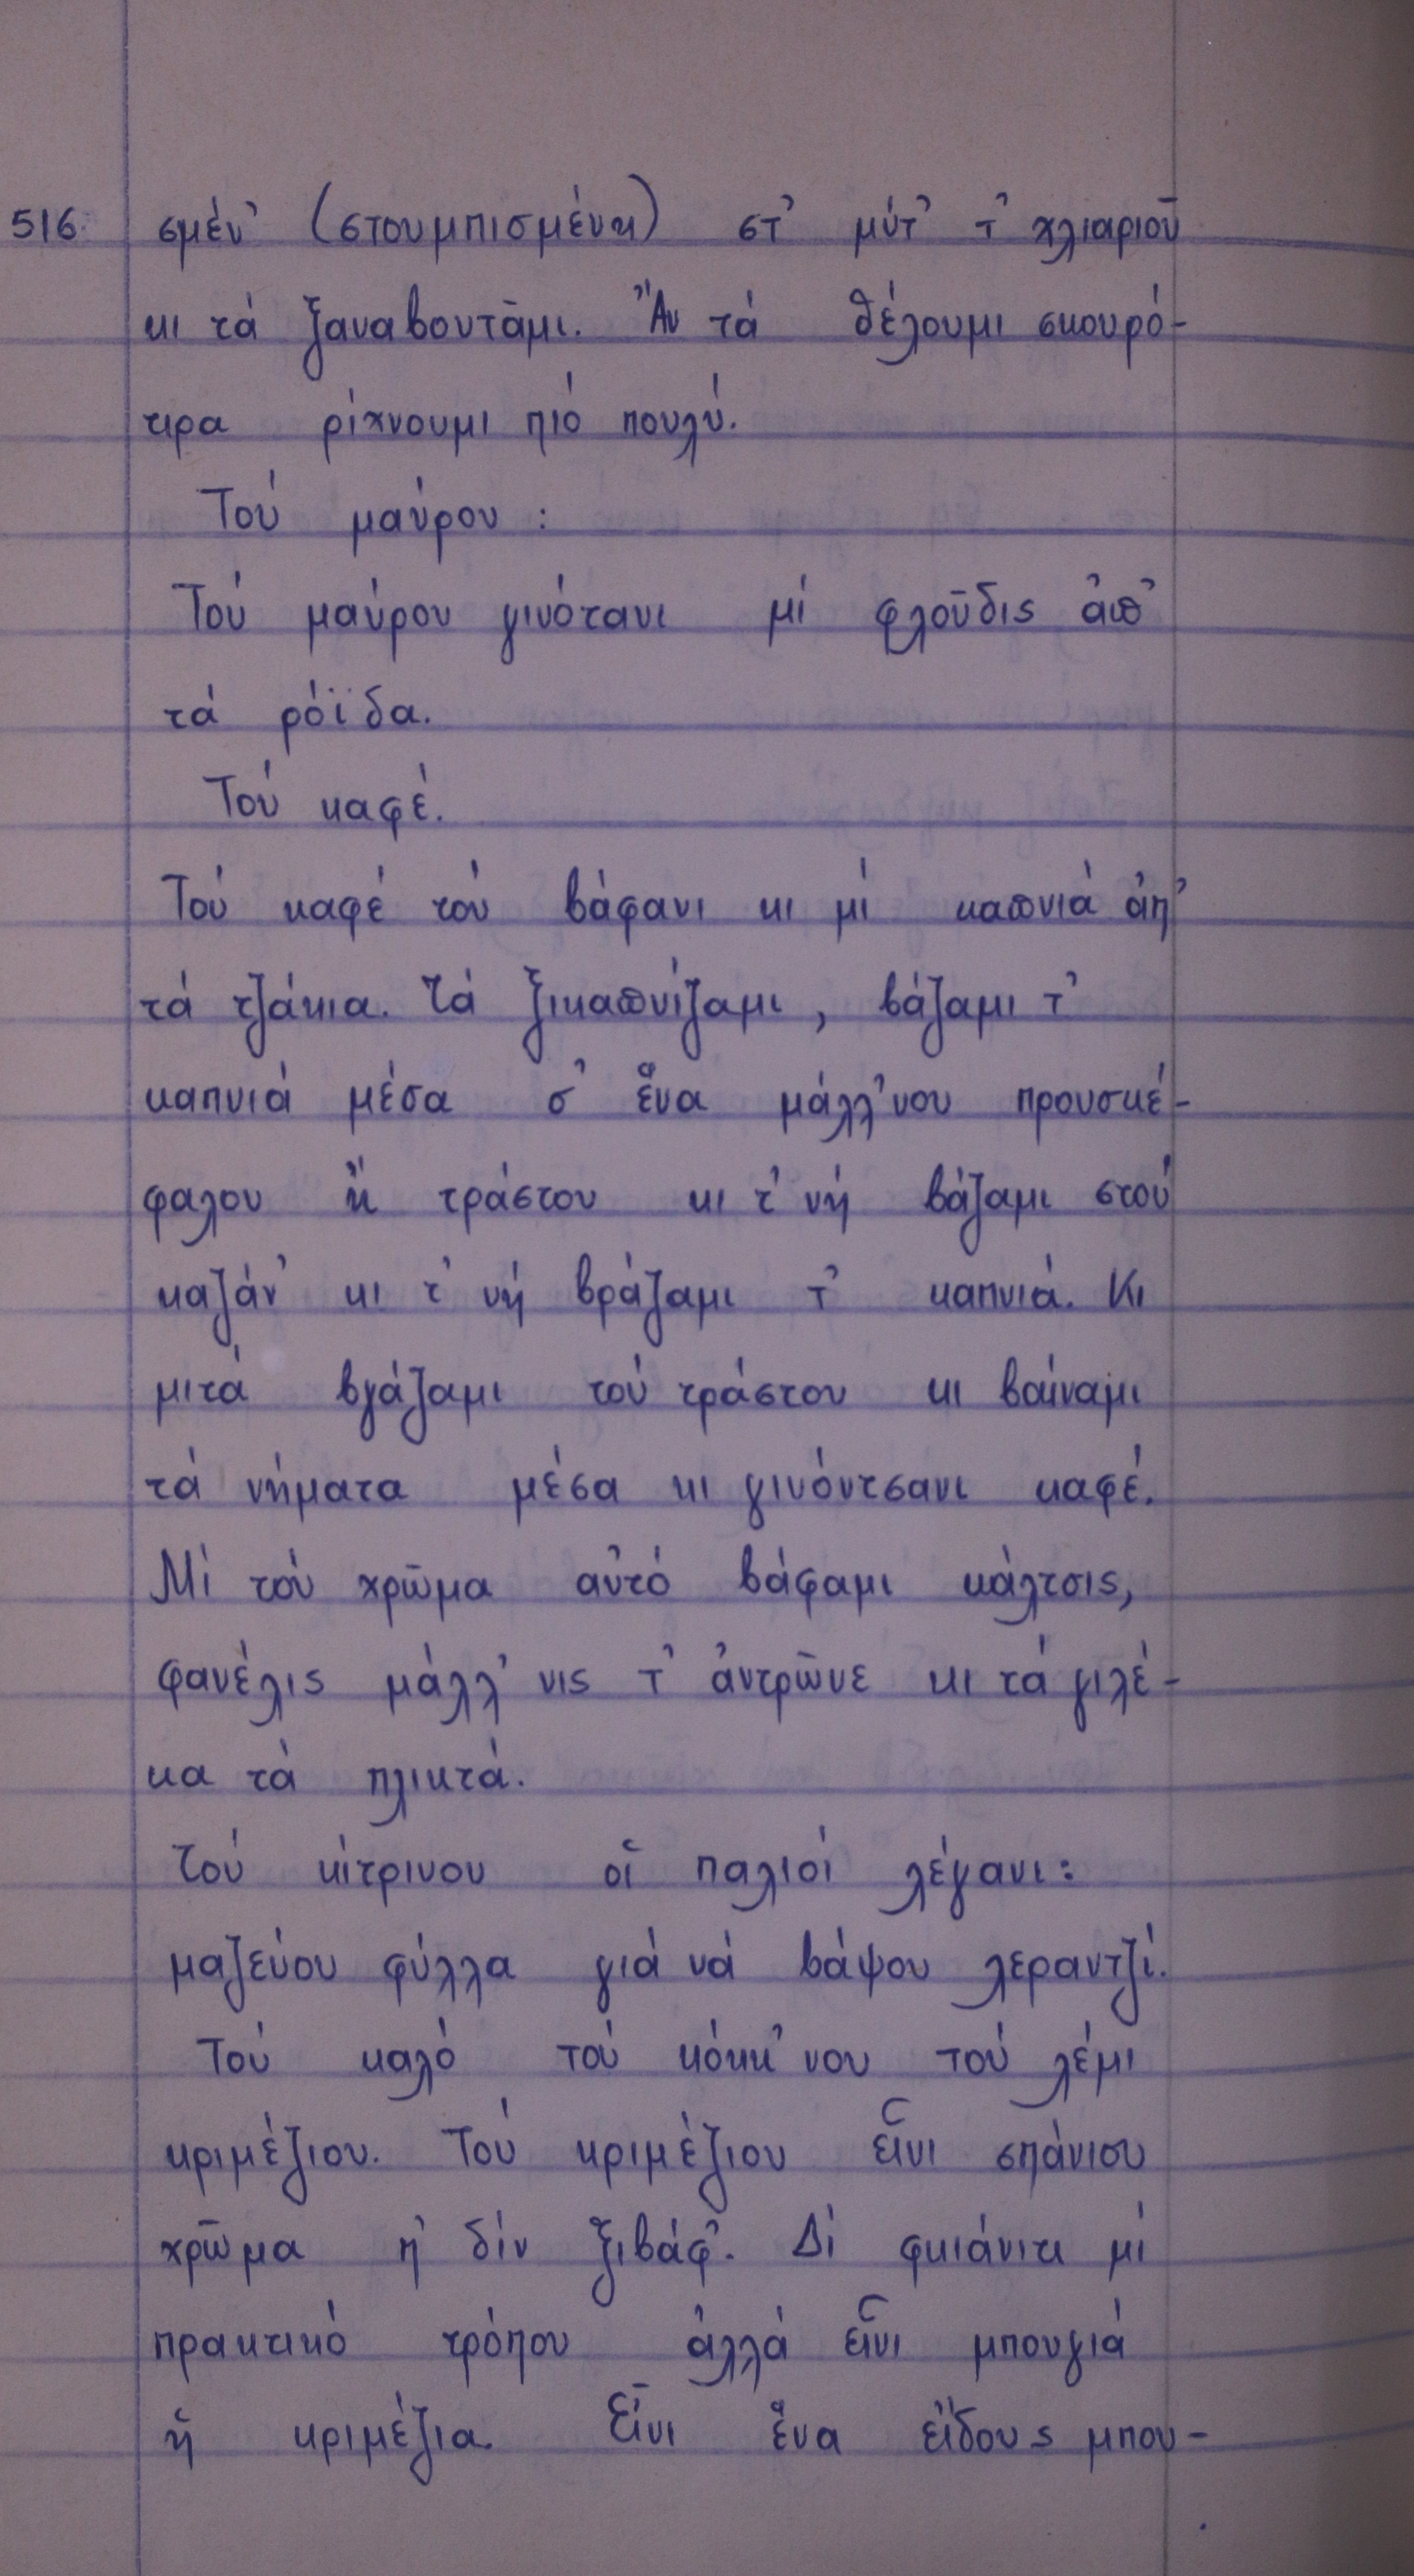 516. σμέν᾿ (στουμπισμένη) στ᾿ μύτ᾿ τ᾿ χλιαριοῦ
κι τά ξαναβουτᾶμι. Ἄν τά θέλουμι σκουρό-
τιρα ρίχνουμι πιό πουλύ.
Τού μαύρου :
Τού μαύρου γινότανι μί φλοῦδις ἀπ᾿
τά ρόϊδα.
Τού καφέ.
Τού καφέ τού βάφανι κι μί καπνιά ἀπ᾿
τά τζάκια. Τά ξικαπνίζαμι, βάζαμι τ᾿
καπνιά μέσα σ᾿ ἕνα μάλλ᾿νου προυσκέ-
φαλου ἤ τράστου κι τ᾿ νή βάζαμι στού
καζάν᾿ κι τ᾿ νή βράζαμι τ᾿ καπνιά. Κι
μιτά βγάζαμι τού τράστου κι βαίναμι
τά νήματα μέσα κι γινόντσανι καφέ.
Μί τού χρῶμα αὐτό βάφαμι κάλτσις,
φανέλις μάλλ᾿ νις τ᾿ ἀντρῶνε κι τά γιλέ-
κα τά πλικτά.
Τού κίτρινου οἵ παλιοί λέγανι:
μαζεύου φύλλα γιά νά βάψου λεραντζί.
Τού καλό τού κόκκ᾿ νου τού λέμι
κριμέζιου. Τού κριμέζιου εἶνι σπάνιου
χρῶμα π᾿ δίν ξιβάφ᾿. Δί φκιάνιτι μί
πρακτικό τρόπου ἀλλά εἶνι μπουγιά
ἥ κριμέζια. Εἶνι ἕνα εἴδους μπου-